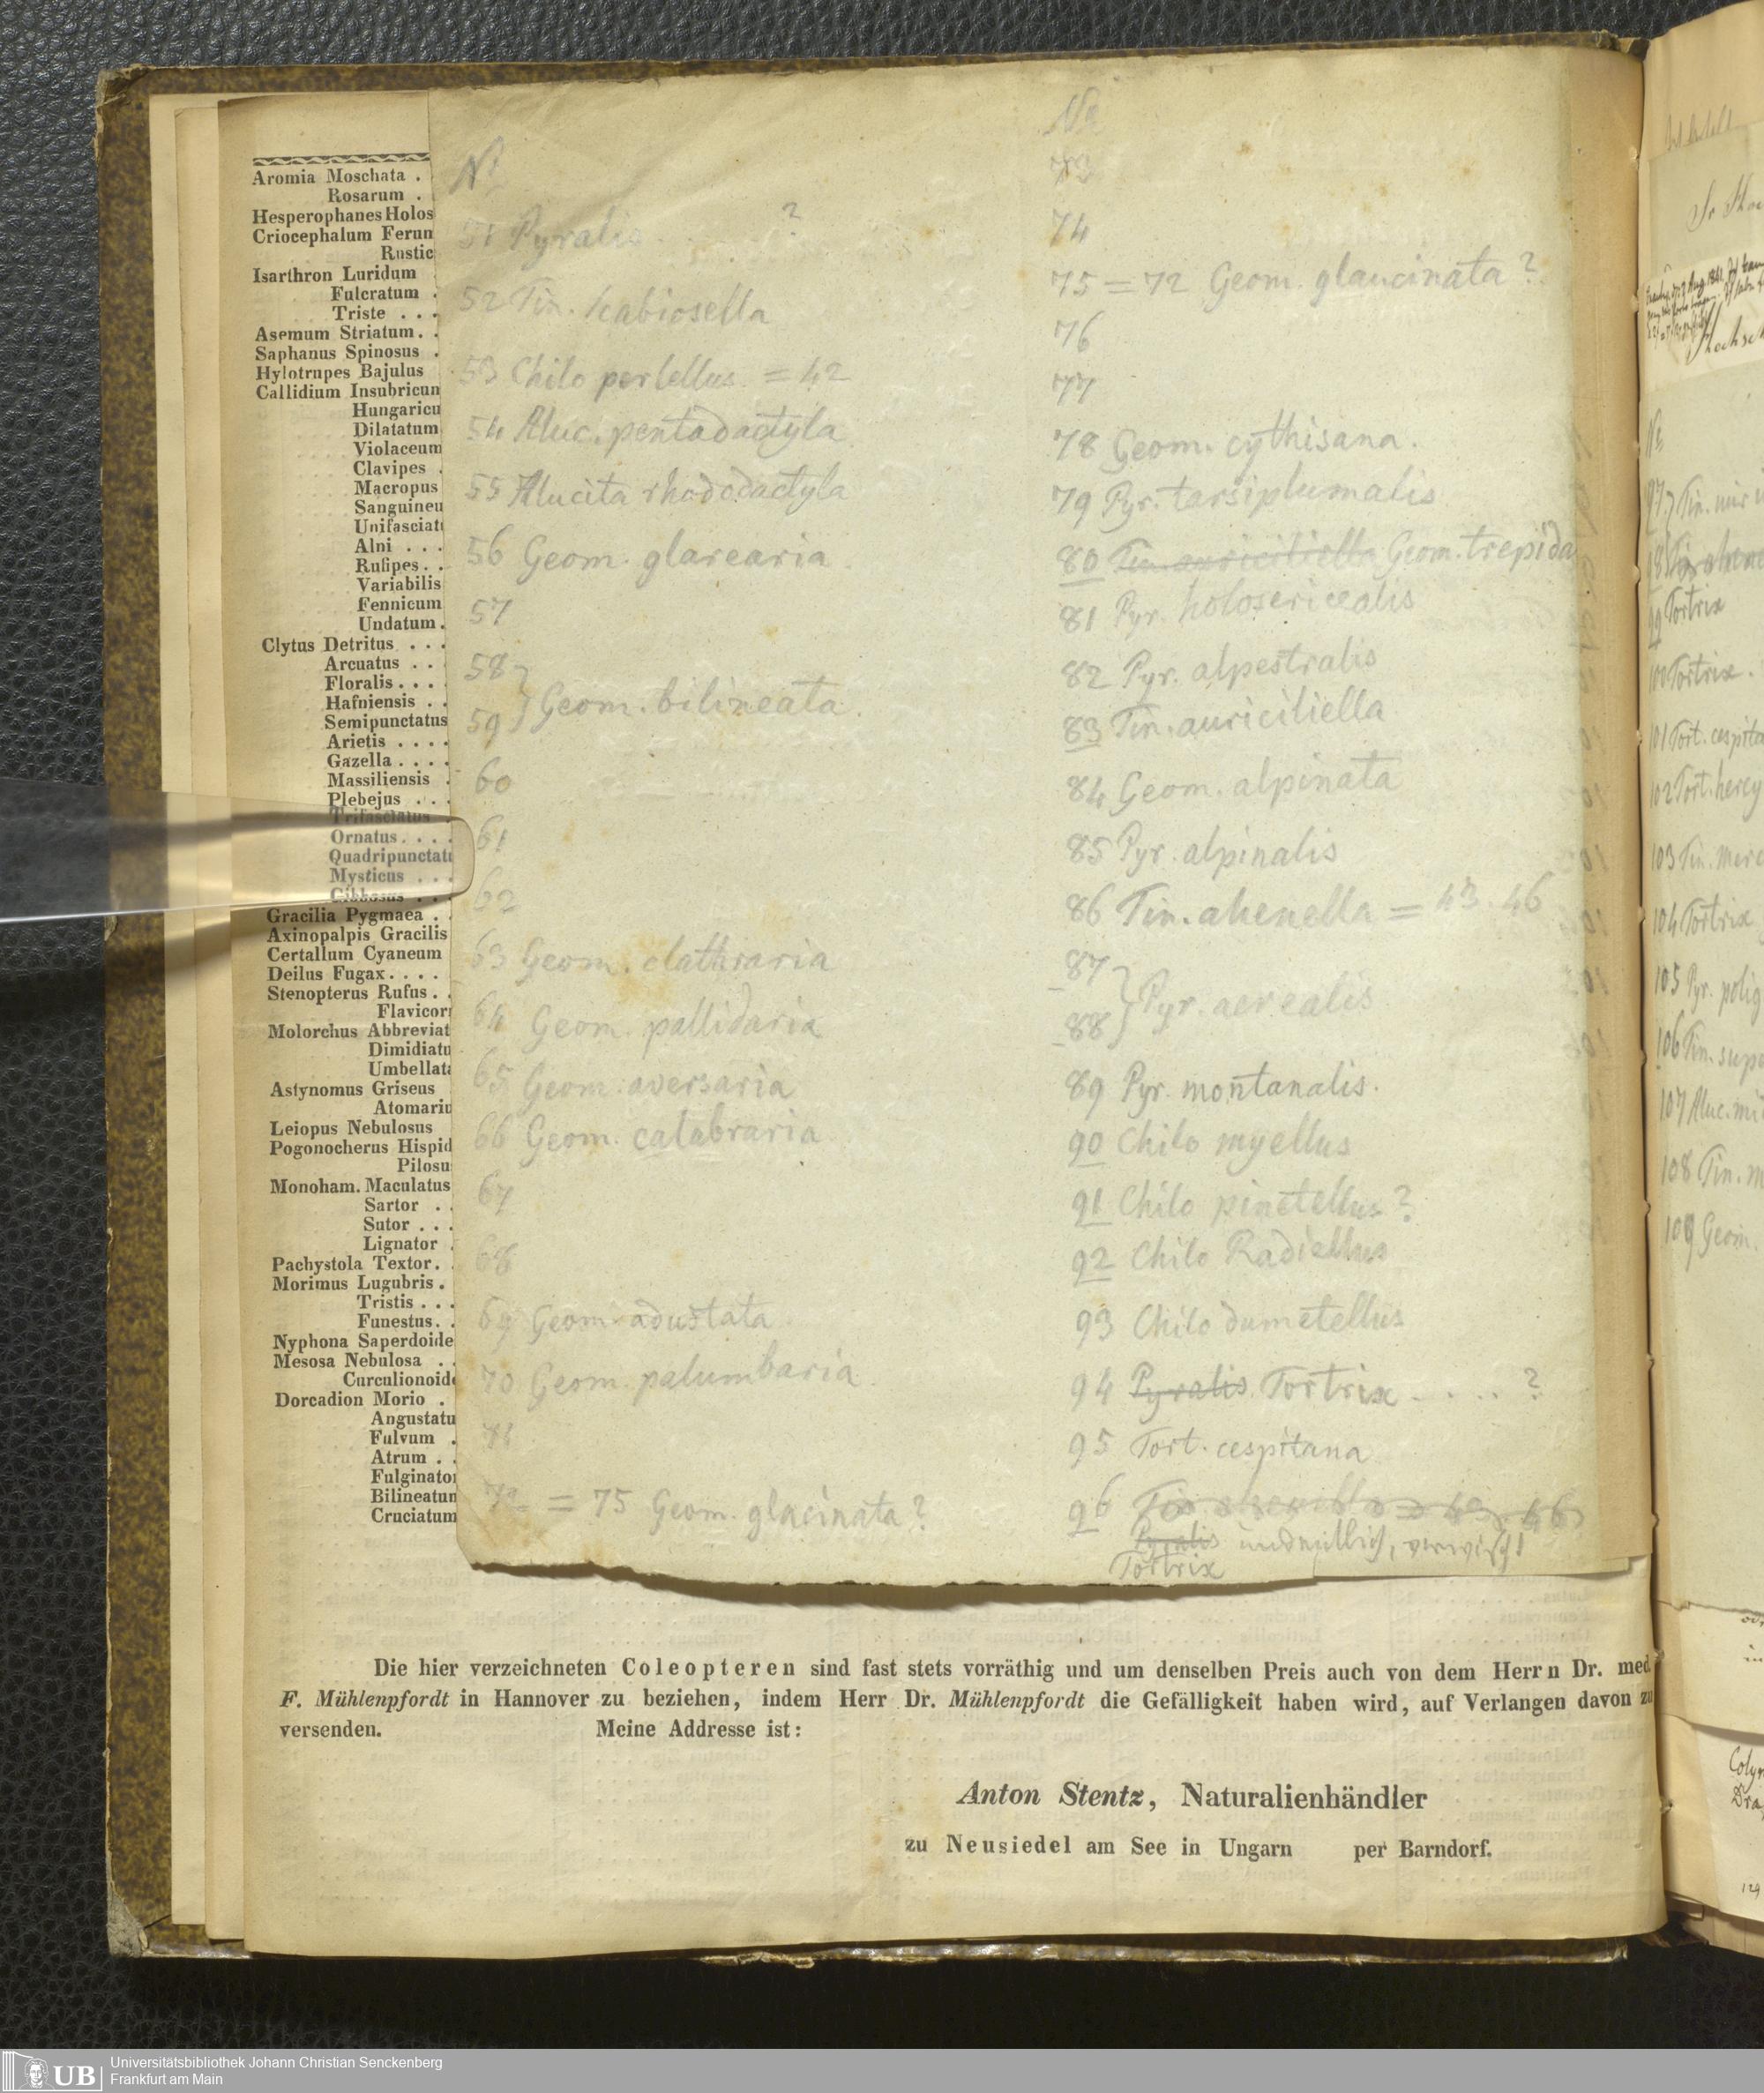 Aromia Moschata .
Rosarum .
Hesperophanes Holos
Criocephalum Ferun
Rustic
Isarthron Luridum
Fulcratum .
Triste . . .
Asemum Striatum. .
Saphanus Spinosus .
Hylotrupes Bajulus
Callidium Insubricun
Hungaricu
Dilatatum
Violaceum
Clavipes .
Macropus
Sanguineu
Unifasciat
Alni . . .
Rufipes. .
Variabilis
Fennicum
Undatum.
Clytus Detritus . . .
Arcuatus . .
Floralis. . . .
Hafniensis . .
Semipunctatus
Arietis . . . .
Gazella . . . .
Massiliensis .
Plebejus . . .
Trifasciatus
Ornatus. . . .
Quadripunctat
Mysticus . . .
Gibbosus . . .
Gracilia Pygmaea . .
Axinopalpis Gracilis
Certallum Cyaneum
Deilus Fugax. . . .
Stenopterus Rufus. .
Flavicor
Molorchus Abbreviat
Dimidiatu
Umbellat
Astynomus Griseus
Atomariu
Leiopus Nebulosus
Pogonocherus Hispid
Pilosu
Monoham. Maculatus
Sartor . .
Sutor . . .
Lignator .
Pachystola Textor. .
Morimus Lugubris. .
Tristis . . .
Funestus. .
Nyphona Saperdoide
Mesosa Nebulosa . .
Curculionoid
Dorcadion Morio .
Angustatu
Fulvum .
Atrum . .
Fulginato
Bilineatun
Cruciatum
No
51 Pyralis ?
52 Tin. scabiosella
53 Chilo perlellus = 42
54 Aluc. pentadactyla
55 Alucita rhododactyla
56 Geom. glarearia
57
58
59 } Geom. bilineata
60
61
62
63 Geom. clathraria
64 Geom. pallidaria
65 Geom. aversaria
66 Geom. calabraria
67
68
69 Geom. adustata
70 Geom. palumbaria
71
72 = 75 Geom. glacinata ?
No
73
74
75 = 72 Geom. glaucinata ?
76
77
78 Geom. cythisana.
79 Pyr. tarsiplumalis
80 Tin. auriciliella Geom. trepida
81 Pyr. holosericealis
82 Pyr. alpestralis
83 Tin. auriciliella
84 Geom. alpinata
85 Pyr. alpinalis
86 Tin. ahenella = 43. 46
87
88 } Pyr. aerealis
89 Pyr. montanalis.
90 Chilo myellus
91 Chilo pinetellus ?
92 Chilo Radiellus
93 Chilo dumetellus
94 Pyralis Tortrix . . . . ?
95 Tort. cespitana
96 Tin. ahenella = 43. 46
Pyralis undeutlich, verwischt
Tortrix
Die hier verzeichneten Coleopteren sind fast stets vorräthig und um denselben Preis auch von dem Herrn Dr. med.
F. Mühlenpfordt in Hannover zu beziehen, indem Herr Dr. Mühlenpfordt die Gefälligkeit haben wird, auf Verlangen davon zu
versenden. Meine Addresse ist:
Anton Stentz, Naturalienhändler
zu Neusiedel am See in Ungarn per Barndorf.
97
Tin.
99 Tortrix
100 Tortrix.
101 Tort. cespita
102 Tort. hercy
103 Tin.
104 Tortrix
105 Pyr. polig
106 Tin. supe
107 Aluc. mi
108 Tin. m
109 Geom.
UB
Universitätsbibliothek Johann Christian Senckenberg
Frankfurt am Main